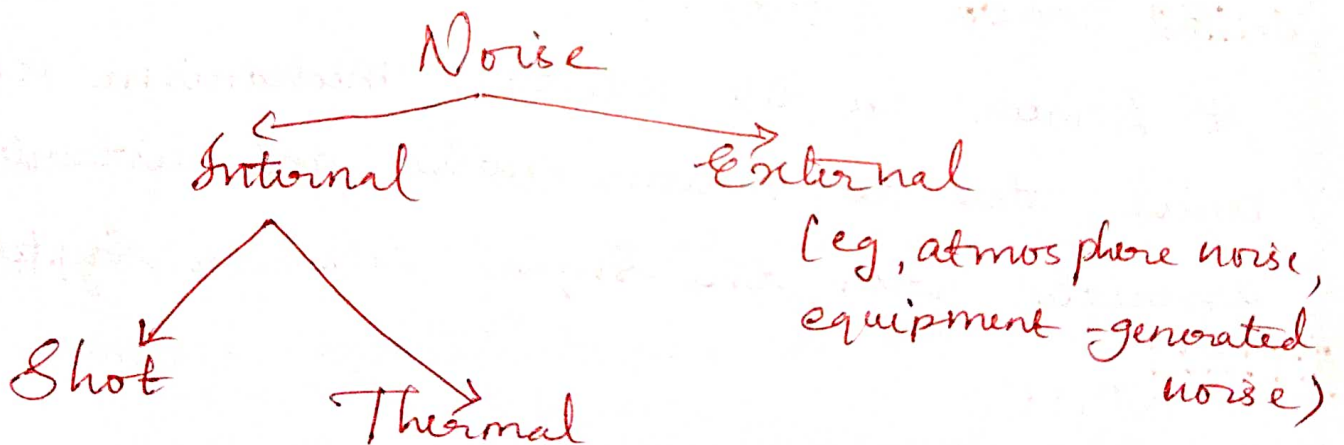 Noise
Internal
External
(eg, atmosphere noise,
equipment-generated
noise)
Shot
Thermal